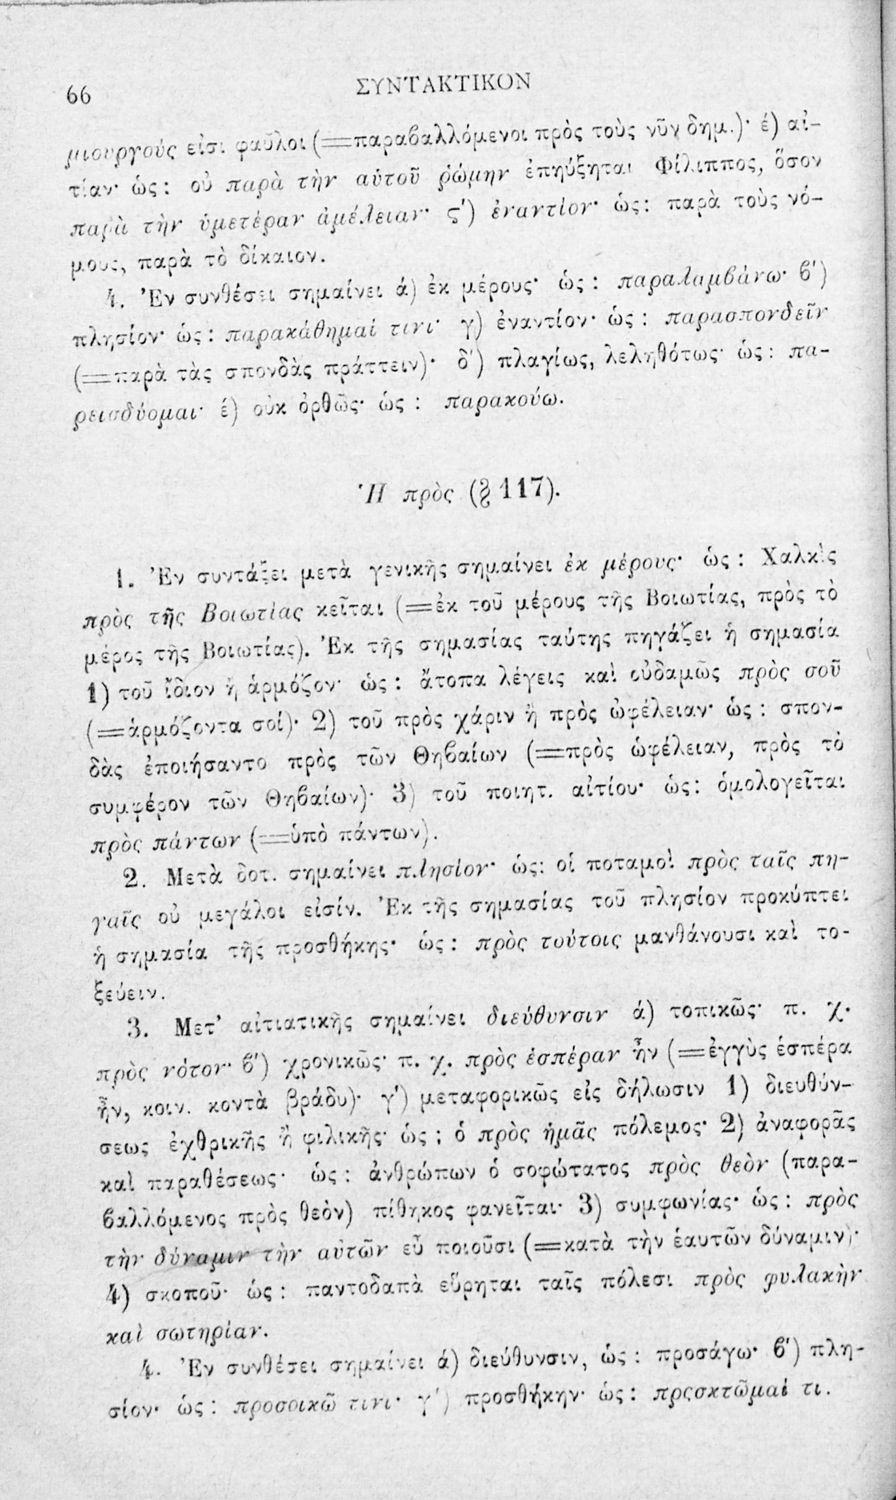 66
ΣΥΝΤΑΚΤΙΚΟΝ
μιουργούς εἰσι φαῦλοι (=παραβαλλόμενοι πρὸς τοὺς νῦν δημ.)· έ) αἰ-
τίαν· ὡς: οὐ παρὰ τὴν αὑτοῦ ῥώμην ἐπηύξηται Φίλιππος, ὅσον
παρὰ τὴν ὑμετέραν ἀμέλειαν· ϛ') ἐναντίον· ὡς: παρὰ τοὺς νό-
μους, παρὰ τὸ δίκαιον.
4. Ἐν συνθέσει σημαίνει ά) ἐκ μέρους· ὡς: παραλαμβάνω· β')
πλησίον· ὡς: παρακάθημαί τινι· γ) ἐναντίον· ὡς: παρασπονδεῖν
(=παρὰ τὰς σπονδὰς πράττειν)· δ') πλαγίως, λεληθότως· ὡς: πα-
ρεισδύομαι· έ) οὐκ ὀρθῶς· ὡς: παρακούω.
Ἡ πρὸς (§ 117).
1. Ἐν συντάξει μετὰ γενικῆς σημαίνει ἐκ μέρους· ὡς: Χαλκὶς
πρὸς τῆς Βοιωτίας κεῖται (=ἐκ τοῦ μέρους τῆς Βοιωτίας, πρὸς τὸ
μέρος τῆς Βοιωτίας). Ἐκ τῆς σημασίας ταύτης πηγάζει ἡ σημασία
1) τοῦ ἴδιον ἢ ἁρμόζον· ὡς: ἄτοπα λέγεις καὶ οὐδαμῶς πρὸς σοῦ
(=ἁρμόζοντα σοί)· 2) τοῦ πρὸς χάριν ἢ πρὸς ὠφέλειαν· ὡς: σπον-
δὰς ἐποιήσαντο πρὸς τῶν Θηβαίων (=πρὸς ὠφέλειαν, πρὸς τὸ
συμφέρον τῶν Θηβαίων)· 3) τοῦ ποιητ. αἰτίου· ὡς: ὁμολογεῖται
πρὸς πάντων (=ὑπὸ πάντων).
2. Μετὰ δοτ. σημαίνει πλησίον· ὡς: οἱ ποταμοὶ πρὸς ταῖς πη-
γαῖς οὐ μεγάλοι εἰσίν. Ἐκ τῆς σημασίας τοῦ πλησίον προκύπτει
ἡ σημασία τῆς προσθήκης· ὡς: πρὸς τούτοις μανθάνουσι καὶ το-
ξεύειν.
3. Μετ' αἰτιατικῆς σημαίνει διεύθυνσιν ά) τοπικῶς· π. χ.
πρὸς νότον· β') χρονικῶς· π. χ. πρὸς ἑσπέραν ἦν (=ἐγγὺς ἑσπέρα
ἦν, κοιν. κοντὰ βράδυ)· γ') μεταφορικῶς εἰς δήλωσιν 1) διευθύν-
σεως ἐχθρικῆς ἢ φιλικῆς· ὡς: ὁ πρὸς ἡμᾶς πόλεμος· 2) ἀναφορᾶς
καὶ παραθέσεως· ὡς: ἀνθρώπων ὁ σοφώτατος πρὸς θεὸν (παρα-
βαλλόμενος πρὸς θεὸν) πίθηκος φανεῖται· 3) συμφωνίας· ὡς: πρὸς
τὴν δύναμιν τὴν αὑτῶν εὖ ποιοῦσι (=κατὰ τὴν ἑαυτῶν δύναμιν)·
4) σκοποῦ· ὡς: παντοδαπὰ εὕρηται ταῖς πόλεσι πρὸς φυλακὴν
καὶ σωτηρίαν.
4. Ἐν συνθέσει σημαίνει ά) διεύθυνσιν, ὡς: προσάγω· β') πλη-
σίον· ὡς: προσοικῶ τινι· γ') προσθήκην· ὡς: προσκτῶμαί τι.